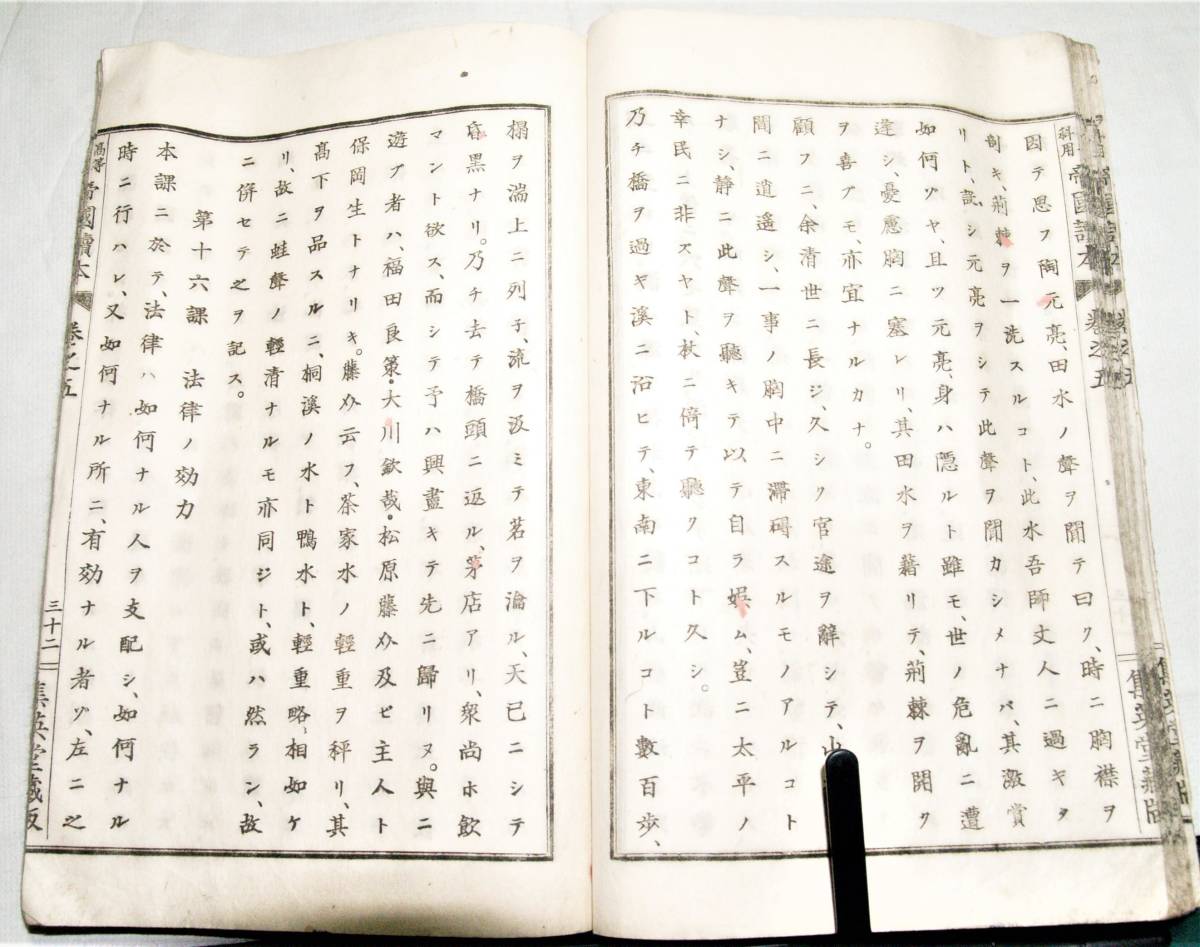 因テ思フ陶元亮、田水ノ聲ヲ聞テ曰ク、時ニ胸襟ヲ
剖キ、荊棘ヲ一洗スルコト、此水吾師丈人ニ過キタ
リト、試シ元亮ヲシテ此聲ヲ聞カシメナバ、其激賞
如何ゾヤ、且ツ元亮、身ハ隱ルト雖モ、世ノ危亂ニ遭
逢シ、憂慮胸ニ塞レリ、其田水ヲ藉リテ、荊棘ヲ開ク
ヲ喜アモ、亦宜ナルカナ。
顧フニ、余清世ニ長ジ、久シク官途ヲ辭シテ、山
間ニ逍遙シ、一事ノ胸中ニ滯碍スルモノアルコト
ナシ、靜ニ此聲ヲ聽キテ以テ自ラ娯ム、豈ニ太平ノ
幸民ニ非スヤト、杖ニ倚テ聽クコト久シ。
乃チ橋ヲ過ギ溪ニ沿ヒテ、東南ニ下ルコト數百歩、
榻ヲ湍上ニ列子、流ヲ汲ミテ茗ヲ瀹ル、天已ニシテ
昏黑ナリ。乃チ去テ橋頭ニ返ル、茅店アリ、衆尚ホ飲
マント欲ス、而シテ予ハ興盡キテ先ニ歸リヌ。與ニ
遊ア者ハ、福田良策・大川欽哉・松原藤㕝及ビ主人ト
保岡生トナリキ。藤㕝云フ、茶家水ノ輕重ヲ秤リ、其
高下ヲ品スルニ、桐溪ノ水ト鴨水ト、輕重略相如ケ
リ、故ニ蛙聲ノ輕清ナルモ亦同ジト、或ハ然ラン、故
ニ併セテ之ヲ記ス。
第十六課 法律ノ効力
本課ニ於テ、法律ハ如何ナル人ヲ支配シ、如何ナル
時ニ行ハレ、又如何ナル所ニ、有効ナル者ゾ、左ニ之
高等 帝國讀本 卷之五 三十二 集英堂藏版